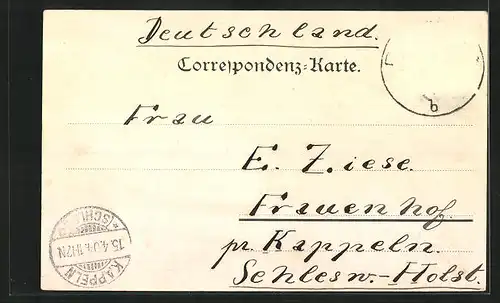 Deutschland.
Correspondenz-Karte.
b
Frau
E. Ziese.
Frauenhof.
pr. Kappeln.
Schlesw.-Holst.
KAPPELN